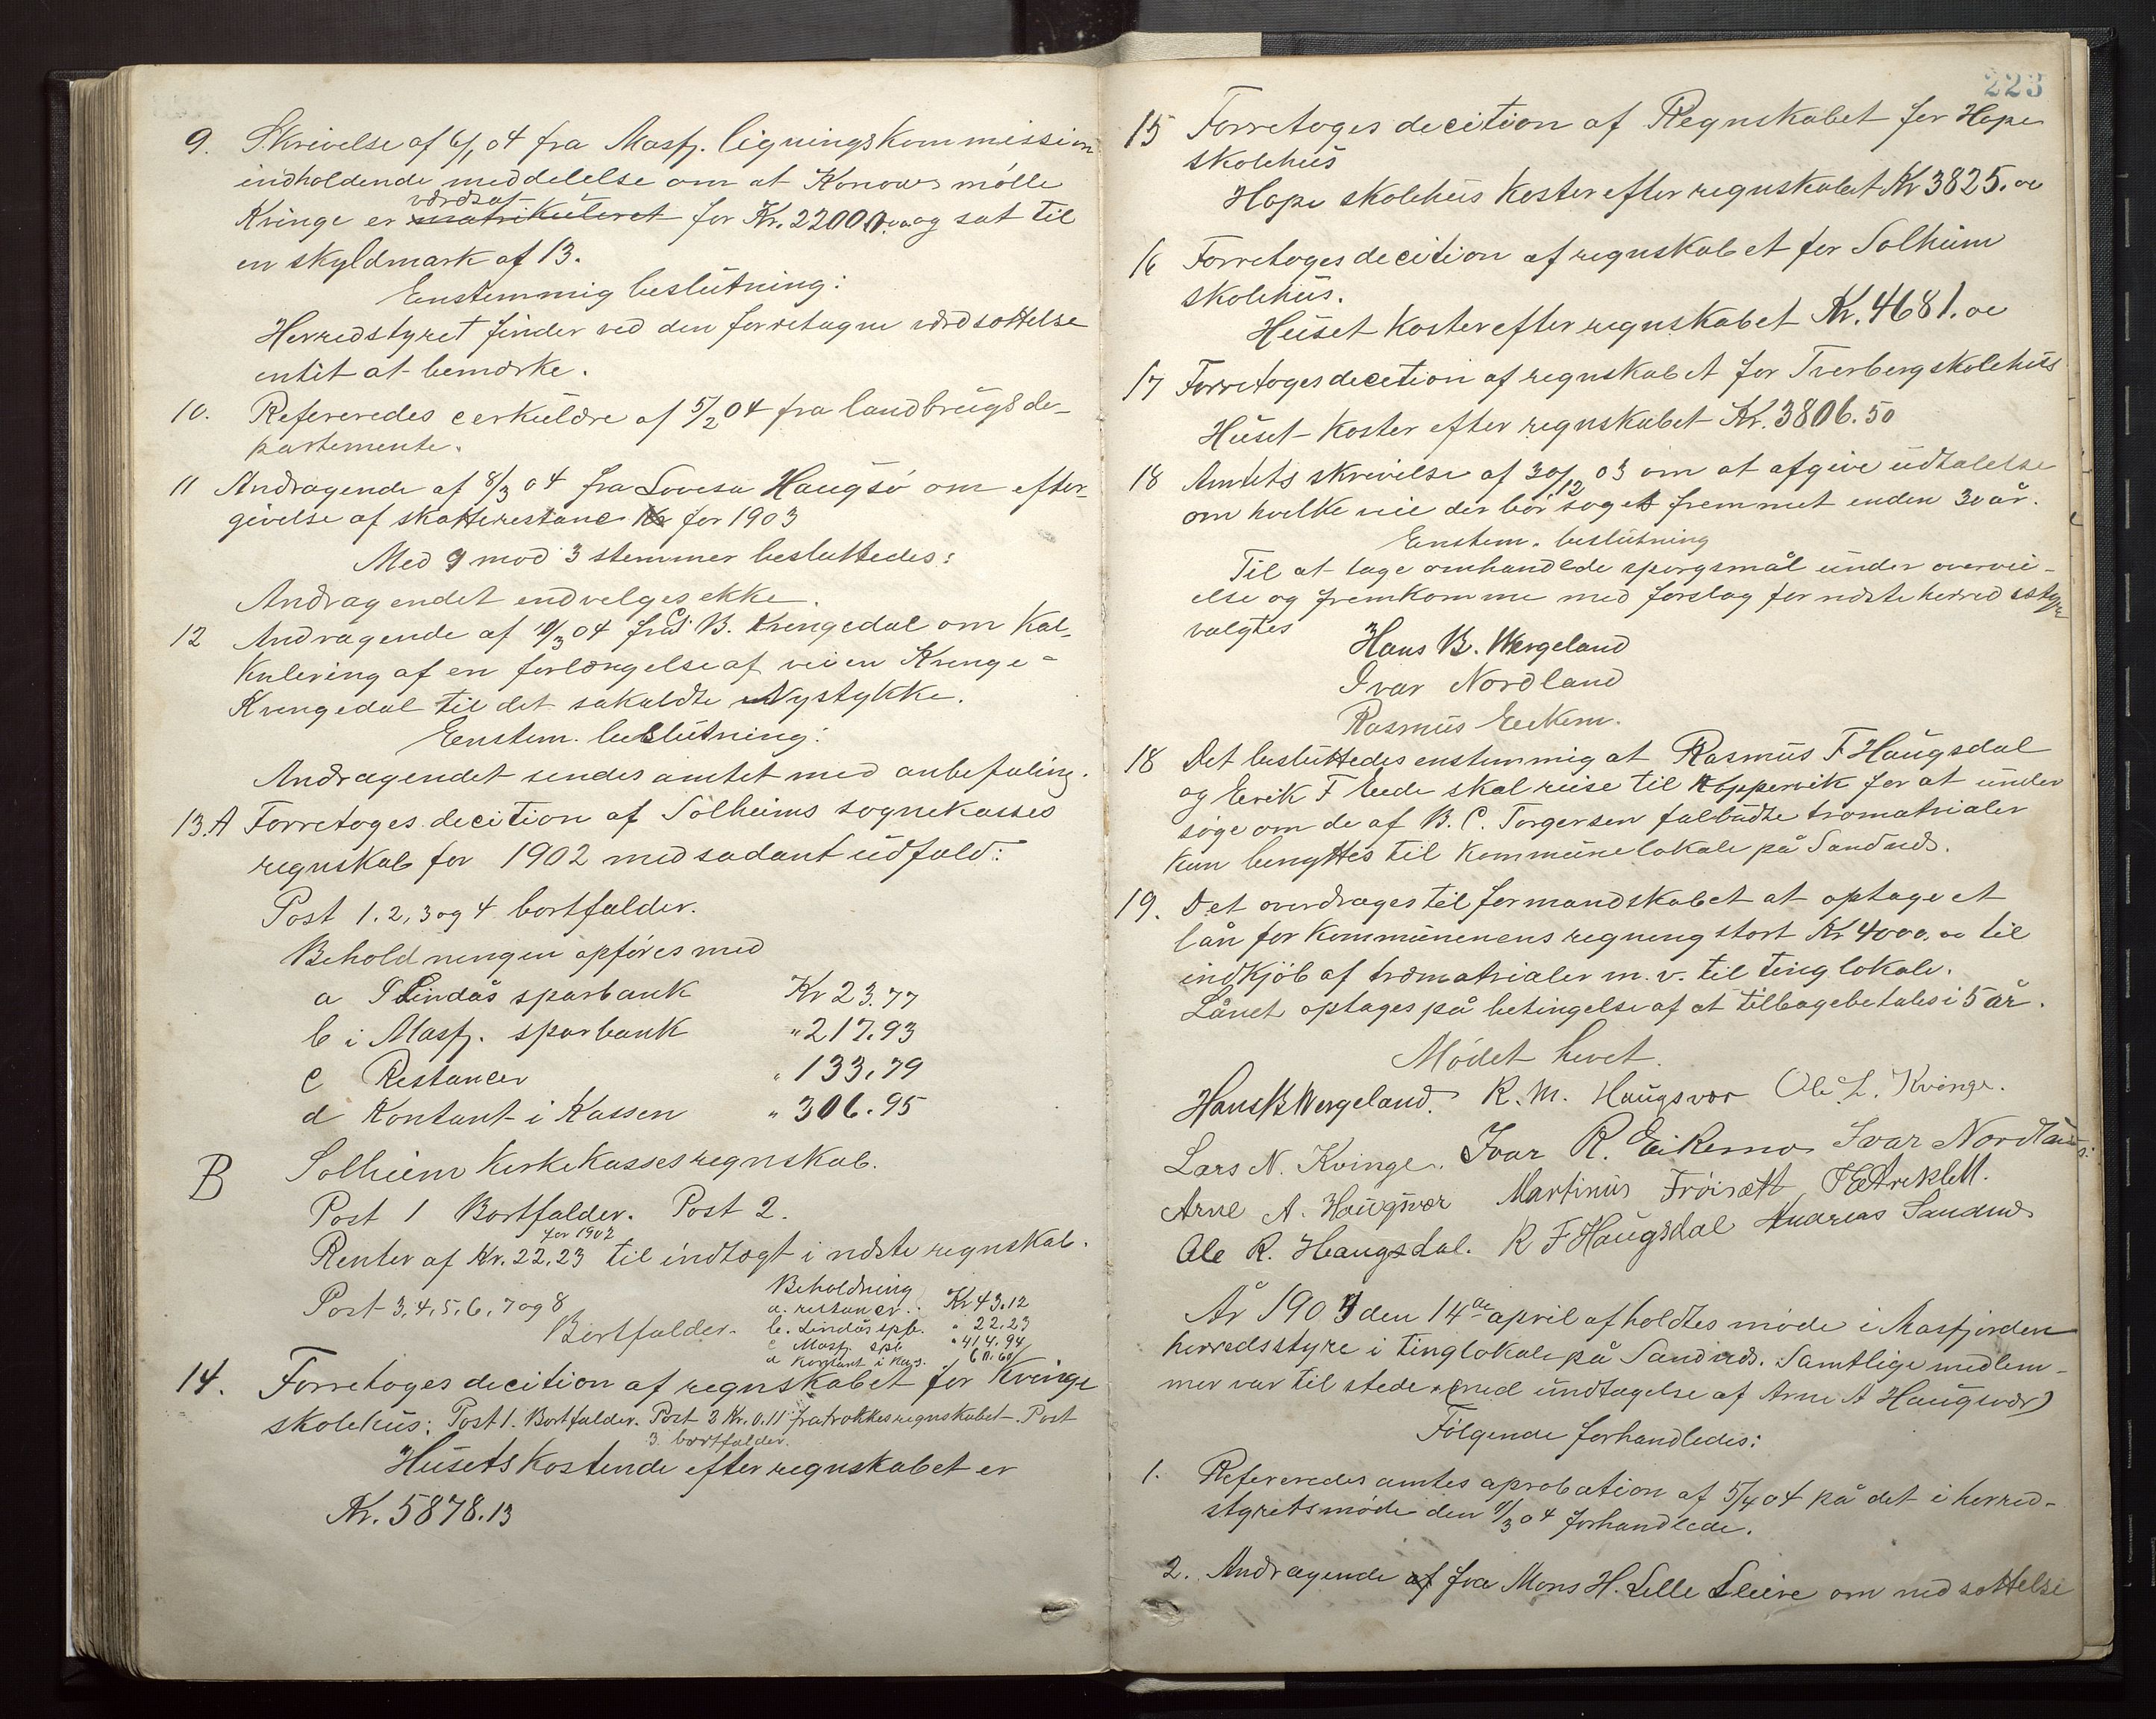 9. Skrivelse af 6/1 04 fra Masfj. ligningskommission
indholdende meddelelse om at Konows mølle
værdsat
Kvinge er matrikuleret for Kr. 22000.oo og sat til
en skyldmark af 13.
Eenstemmig beslutning:
Herredstyret finder ved den forretagne værdsættelse
intit at bemærke.
10. Refereredes cerkulære af 5/2 04 fra landbrugsde-
partemente.
11 Andragende af 8/3 04 fra Lovesa Haugsø om efter-
givelse af skatterestance for 1903
Med 9 mod 3 stemmer besluttedes:
Andragendet endvelges ekke.
12 Andragende af 11/3 04 fra B. Kvingedal om kal-
kulering af en forlængelse af veien Kvinge-
Kvingedal til det sakaldte Nystykke.
Eenstem. beslutning:
Andragendet sendes amtet med anbefaling.
13.A Forretoges decition af Solheims sognekasses
regnskab for 1902 med sadant udfald:
Post 1.2,3 og 4 bortfalder.
Beholdningen opføres med
a I Lindås sparbank Kr 23.77
b i Masfj. sparbank " 217.93
c Restancer " 133.79
d Kontant i Kassen " 306.95
B Solheim kirkekassesregnskab.
Post 1 Bortfalder. Post 2.
for 1902
Renter af Kr. 22,23 til indtægt i næste regnskab.
Post 3,4,5,6,7 og 8
Bortfalder.
Beholdning
a. restancer.. Kr 43.12
b. Lindås spb. " 22.23
c Masfj. spb " 414.94
d Kontant i kas.
14. Forretoges decition af regnskabet for Kvinge
skolehus: Post 1. Bortfalder. Post 2 Kr. 0.11 fratrækkes regnskabet. Post
3 bortfalder.
Husets kostende efter regnskabet er
Kr. 5878.13
223
15 Forretoges decition af Regnskabet for Hope
skolehus
Hope skolehus koster efter regnskabet Kr 3825.oo
16 Forretoges decition af regnskabet for Solheim
skolehus.
Huset koster efter regnskabet Kr. 4681.oo
17 Forretoges decition af regnskabet for Tverberg skolehus
Huset koster efter regnskabet Kr. 3806.50
18 Amtets skrivelse af 30/12 03 om at afgive udtalelse
om hvilke veie der bør søges fremmet enden 30 år.
Enstem. beslutning
Til at tage omhandlede spørgsmål under overvei-
else og fremkomme med forslag for næste herredsstyre
valgtes
Hans B. Wergeland
Ivar Nordland
Rasmus Eikem.
18 Det besluttedes enstemmig at Rasmus F Haugsdal
og Eerik F Eide skal reise til Koppervik for at under
søge om de af B. C. Torgersen falbudte træmatrialer
kan benyttes til kommunelokale på Sandnæs.
19. Det overdrages til formandskabet at optage et
lån for kommunenens regning stort Kr 4000.oo til
indkjøb af træmatrialer m. v. til tinglokale.
Lånet optages på betingelse af at tilbagebetales i 5 år.
Mødet hevet.
Hans B Wergeland. R. M. Haugsvær Ole L. Kvinge.
Lars N. Kvinge. Ivar R. Eikemo Ivar Nordland
Arne A. Haugsvær Martinus Frøisett
Ole R. Haugsdal. R F Haugsdal Andreas Sandnæs
År 1904 den 14de april afholdtes møde i Masfjorden
herredsstyre i tinglokale på Sandnæs. Samtlige medlem-
mer var til stede (med undtagelse af Arne A Haugsvær)
Følgende forhandledes:
1. Refereredes amtes aprobation af 5/4 04 på det i herred-
styretsmøde den 11/3 04 forhandlede.
2. Andragende af fra Mons H. Lille Sleire om nedsættelse